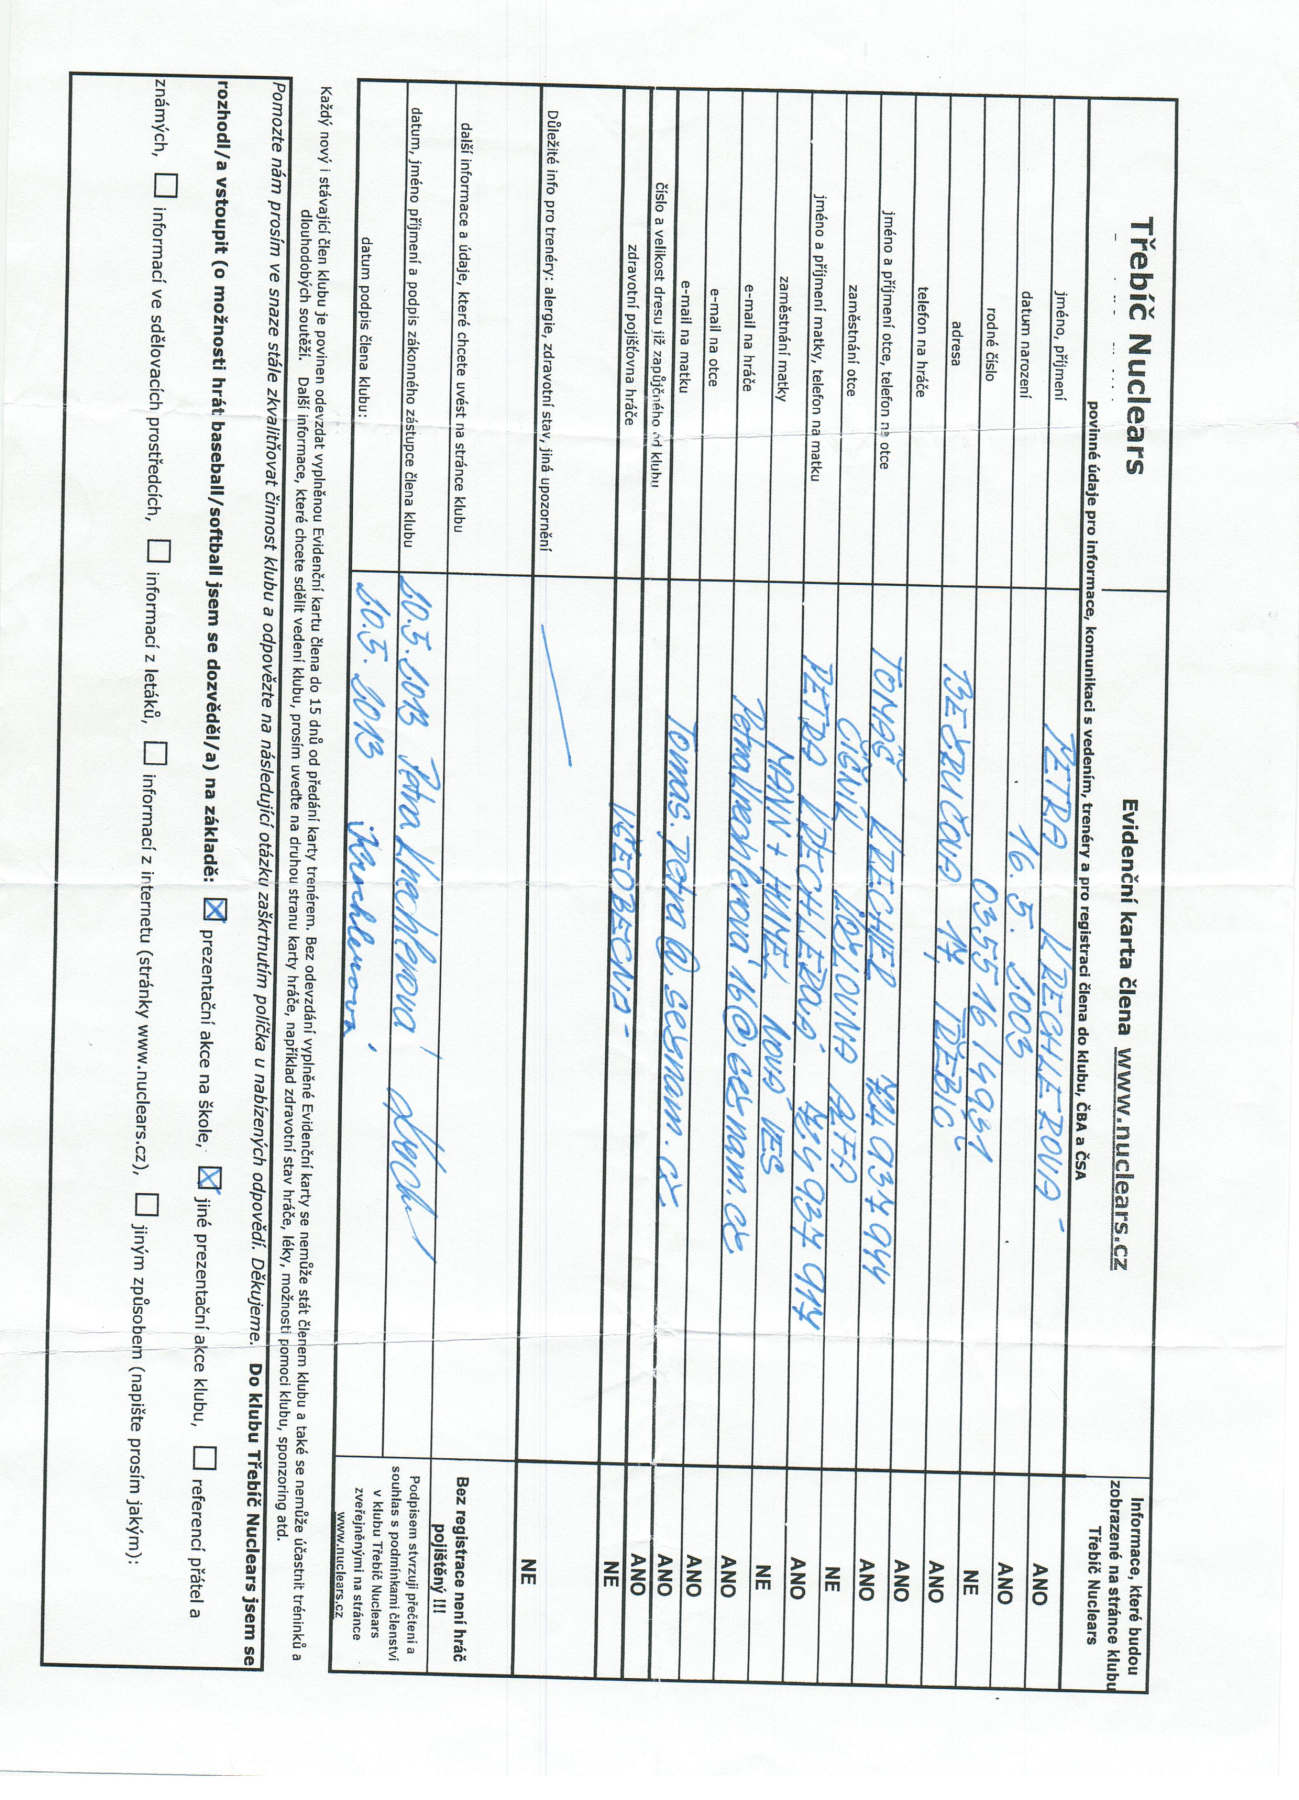 Třebíč Nuclears
Evidenční karta člena www.nuclears.cz
Informace, které budou
zobrazené na stránce klubu
Třebíč Nuclears
povinné údaje pro informace, komunikaci s vedením, trenéry a pro registraci člena do klubu, ČBA a ČSA
jméno, příjmení PETRA KRECHLEROVÁ ANO
datum narození 16.5.2003 ANO
rodné číslo 035516/4931 NE
adresa TŘEBÍČ ANO
telefon na hráče ANO
jméno a příjmení otce, telefon na otce TOMÁŠ KRECHLER 724 937 944 ANO
zaměstnání otce ČÍŠNÍK ALFA NE
jméno a příjmení matky, telefon na matku PETRA KRECHLEROVÁ 724 937 917 ANO
zaměstnání matky MANN + HUMMEL NOVÁ VES NE
e-mail na hráče ANO
e-mail na otce ANO
e-mail na matku Tomas.Petra@seznam.cz ANO
číslo a velikost dresu již zapůjčného od klubu ANO
zdravotní pojišťovna hráče VŠEOBECNÁ NE
Důležité info pro trenéry: alergie, zdravotní stav, jiná upozornění NE
další informace a údaje, které chcete uvést na stránce klubu
Bez registrace není hráč
pojištěný !!!
datum, jméno příjmení a podpis zákonného zástupce člena klubu 20.5.2013 Petra Krechlerová
datum podpis člena klubu: 20.5.2013 Krechlerová
Podpisem stvrzuji přečtení a
souhlas s podmínkami členství
v klubu Třebíč Nuclears
zveřejněnými na stránce
www.nuclears.cz
Každý nový i stávající člen klubu je povinen odevzdat vyplněnou Evidenční kartu člena do 15 dnů od předání karty trenérem. Bez odevzdání vyplněné Evidenční karty se nemůže stát členem klubu a také se nemůže účastnit tréninků a
dlouhodobých soutěží. Další informace, které chcete sdělit vedení klubu, prosím uveďte na druhou stranu karty hráče, například zdravotní stav hráče, léky, možnosti pomoci klubu, sponzoring atd.
Pomozte nám prosím ve snaze stále zkvalitňovat činnost klubu a odpovězte na následující otázku zaškrtnutím políčka u nabízených odpovědí. Děkujeme. Do klubu Třebíč Nuclears jsem se
rozhodl/a vstoupit (o možnosti hrát baseball/softball jsem se dozvěděl/a) na základě: ☒ prezentační akce na škole, ☒ jiné prezentační akce klubu, ☐ referencí přátel a
známých, ☐ informací ve sdělovacích prostředcích, ☐ informací z letáků, ☐ informací z internetu (stránky www.nuclears.cz), ☐ jiným způsobem (napište prosím jakým):